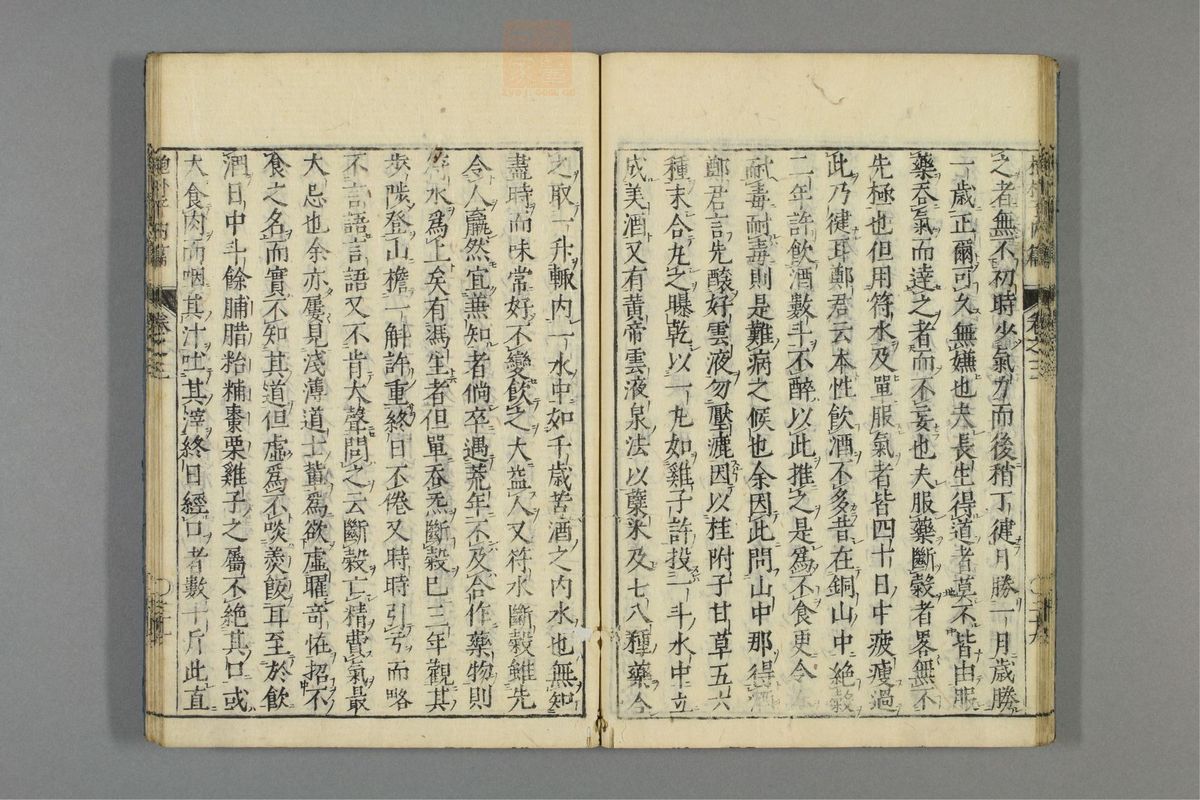 之者無不初時少氣力而後稍丁徤月勝一月歳勝
一歳正爾可久無嫌也夫長生得道者莫不皆由服
藥吞氣而達之者而不妄也夫服藥斷榖者畧無不
先極也但用符水及單服氣者皆四十日中疲瘦過
此乃徤耳鄭君云本性飲酒不多昔在銅山中絶榖
二年許飲酒數斗不醉以此推之是為不食更令
耐毒耐毒則是難病之候也余因此問山中那得酒
鄭君言先釀好雲液勿壓漉因以桂附子甘草五六
種末合丸之曝乾以一丸如雞子許投一斗水中立
成美酒又有黄帝雲液泉法以蘖米及七八種藥合
之取一升輙内一水中如千歳苦酒之内水也無知
盡時而味常好不變飲之大益人又符水斷榖雖先
令人羸然宜兼知者倘卒遇荒年不及合作藥物則
符水爲上矣有馮生者但單吞炁斷榖已三年觀其
步陟登山擔一斛許重終日不倦又時時引弓而略
不言語言語又不肯大聲問之云斷榖亡精費氣最
大忌也余亦屢見淺薄道士輩爲欲虛曜竒恠招不
食之名而實不知其道但虛爲不啖羮飯耳至於飲
酒日中斗餘脯腊粭糒棗栗雞子之屬不絶其口或
大食肉而咽其汁吐其滓終日經口者數十斤此直
抱朴子内篇
卷之三